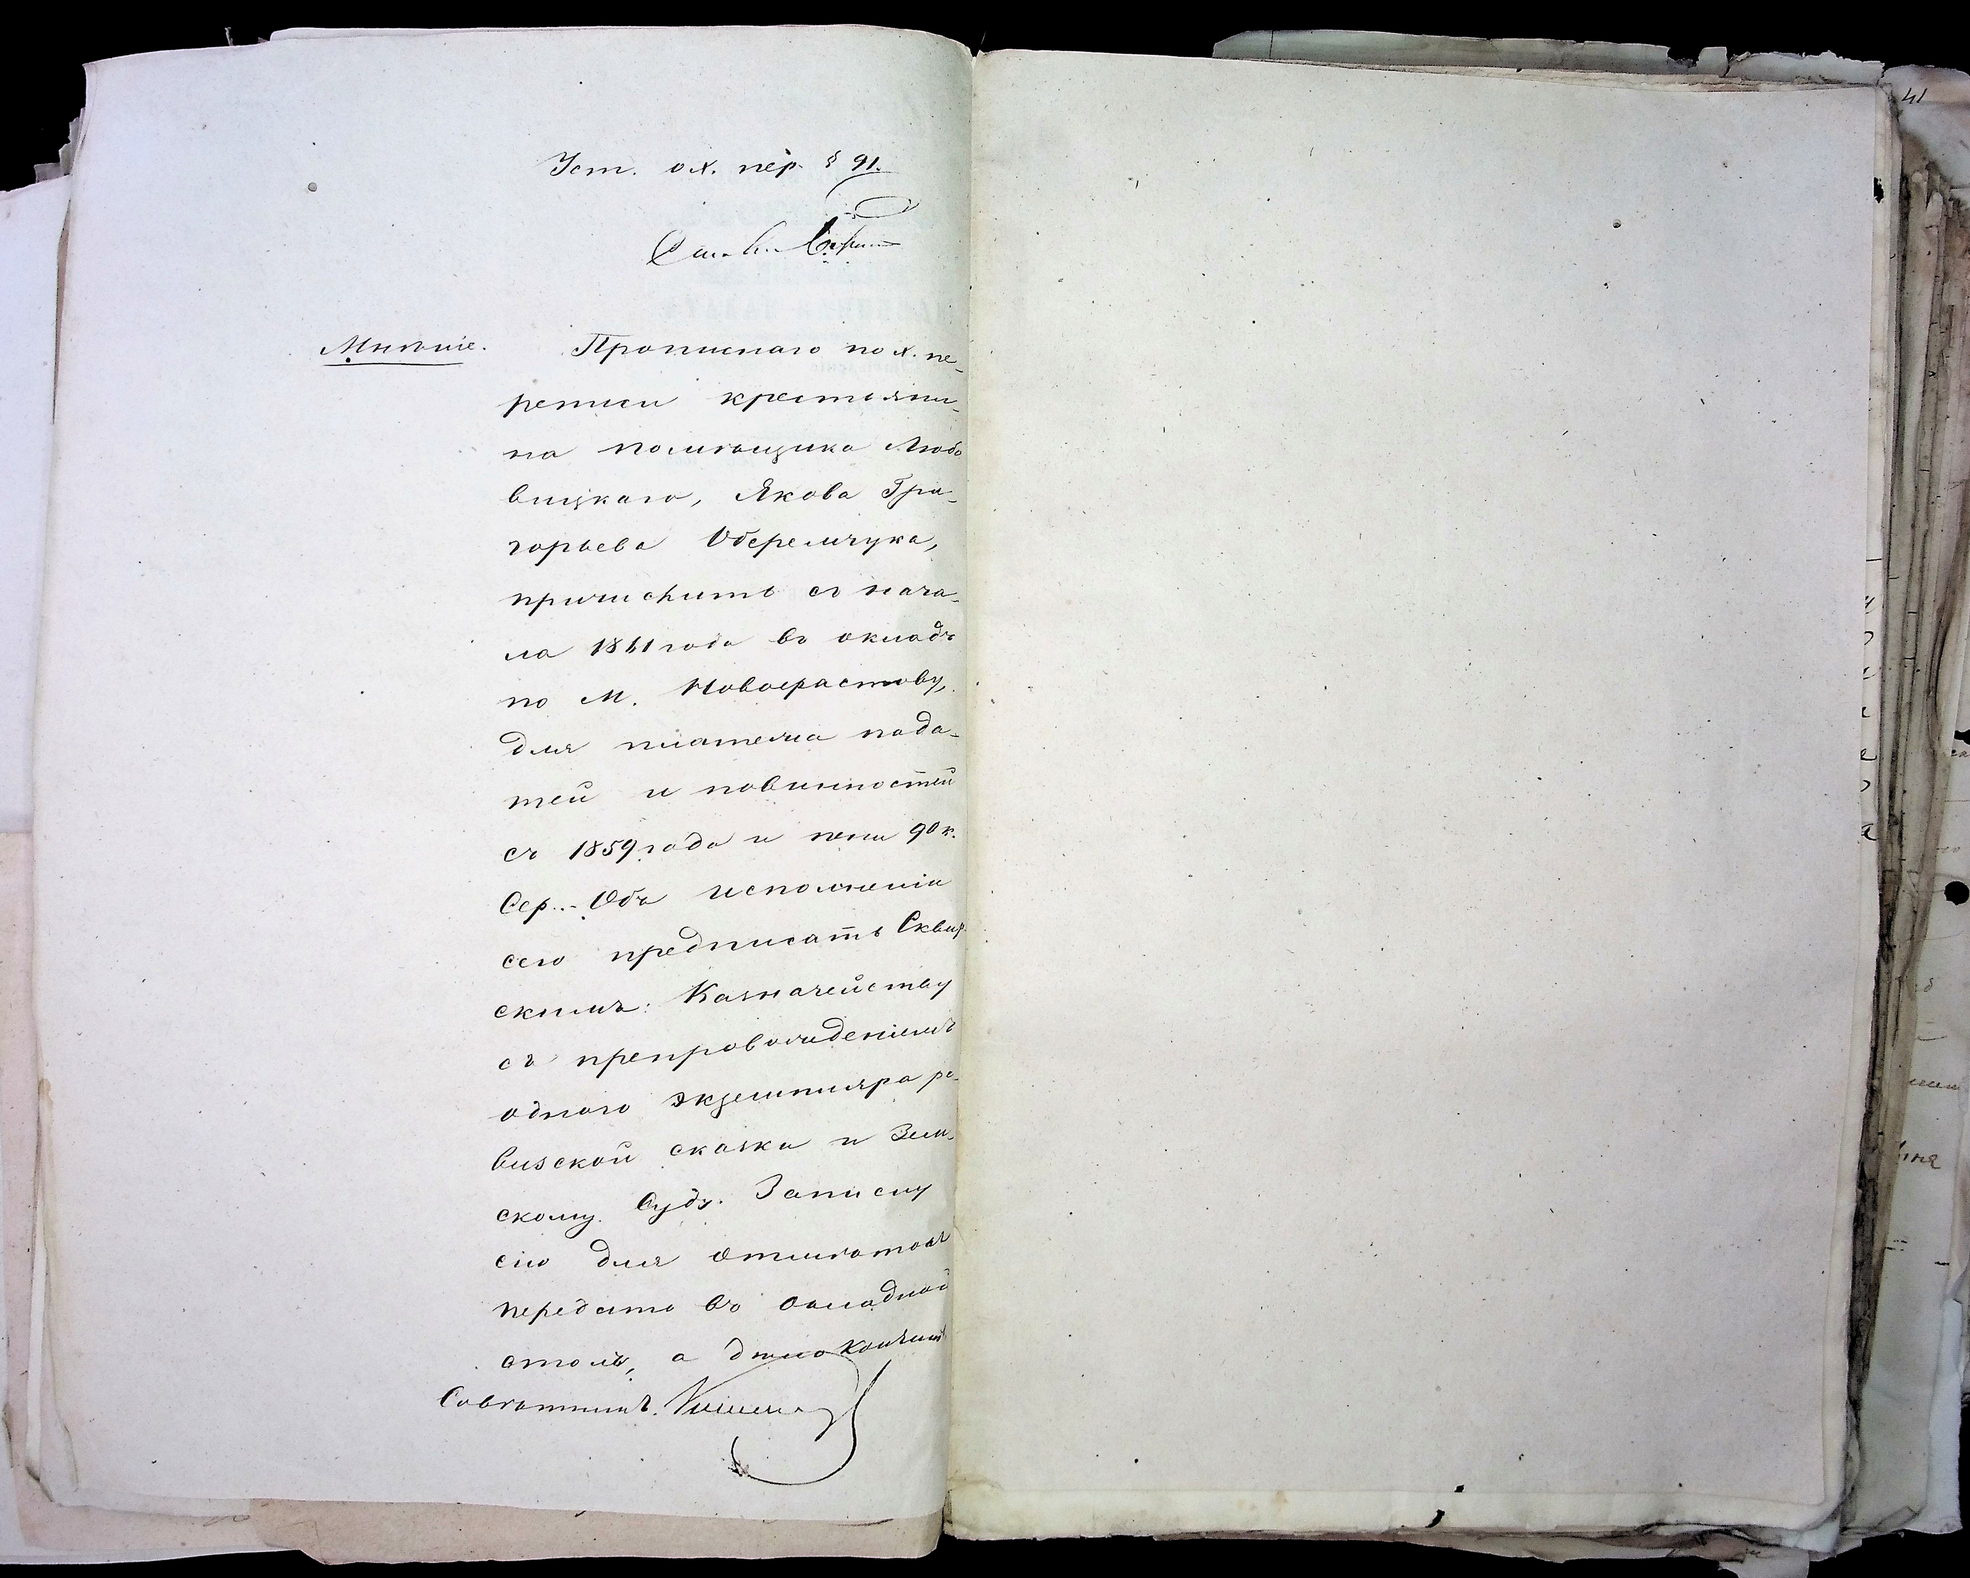 Уст. о X. пер. § 91.
Мнѣніе.
Прописнаго по X. пе-
реписи крестьяни-
на помѣщика Любо
вицкаго, Якова Гри-
горьева Оберемчука,
причислить съ нача-
ла 1861 года въ окладъ
по м. Новофастову,
для платежа пода-
тей и повинностей
съ 1859 года и пени 90 к.
Сер. - Объ исполненіи
сего предписать Сквир-
скимъ: Казначейству
съ препровожденіемъ
одного экземпляра ре-
визской сказки и Зем-
скому Суду. Записку
сію для отмѣтокъ
передать въ окладной
столъ, а дѣло кончить
Совѣтникъ
41